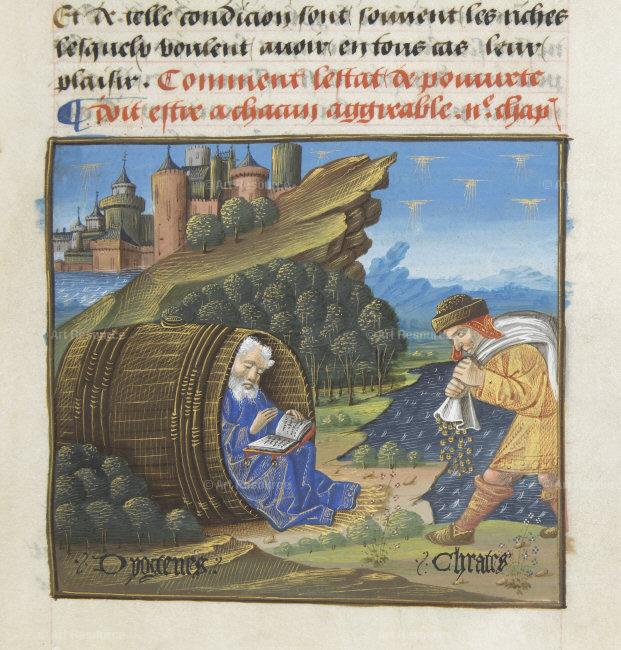 Et de telle condicion sont souvent les riches
lesquelz voulent avoir en tous cas leur
plaisir. Comment lestat de povurete
doit estre a chacun aggreable. iie. chapr
Dyogenes.
Chrates
© Art Resource